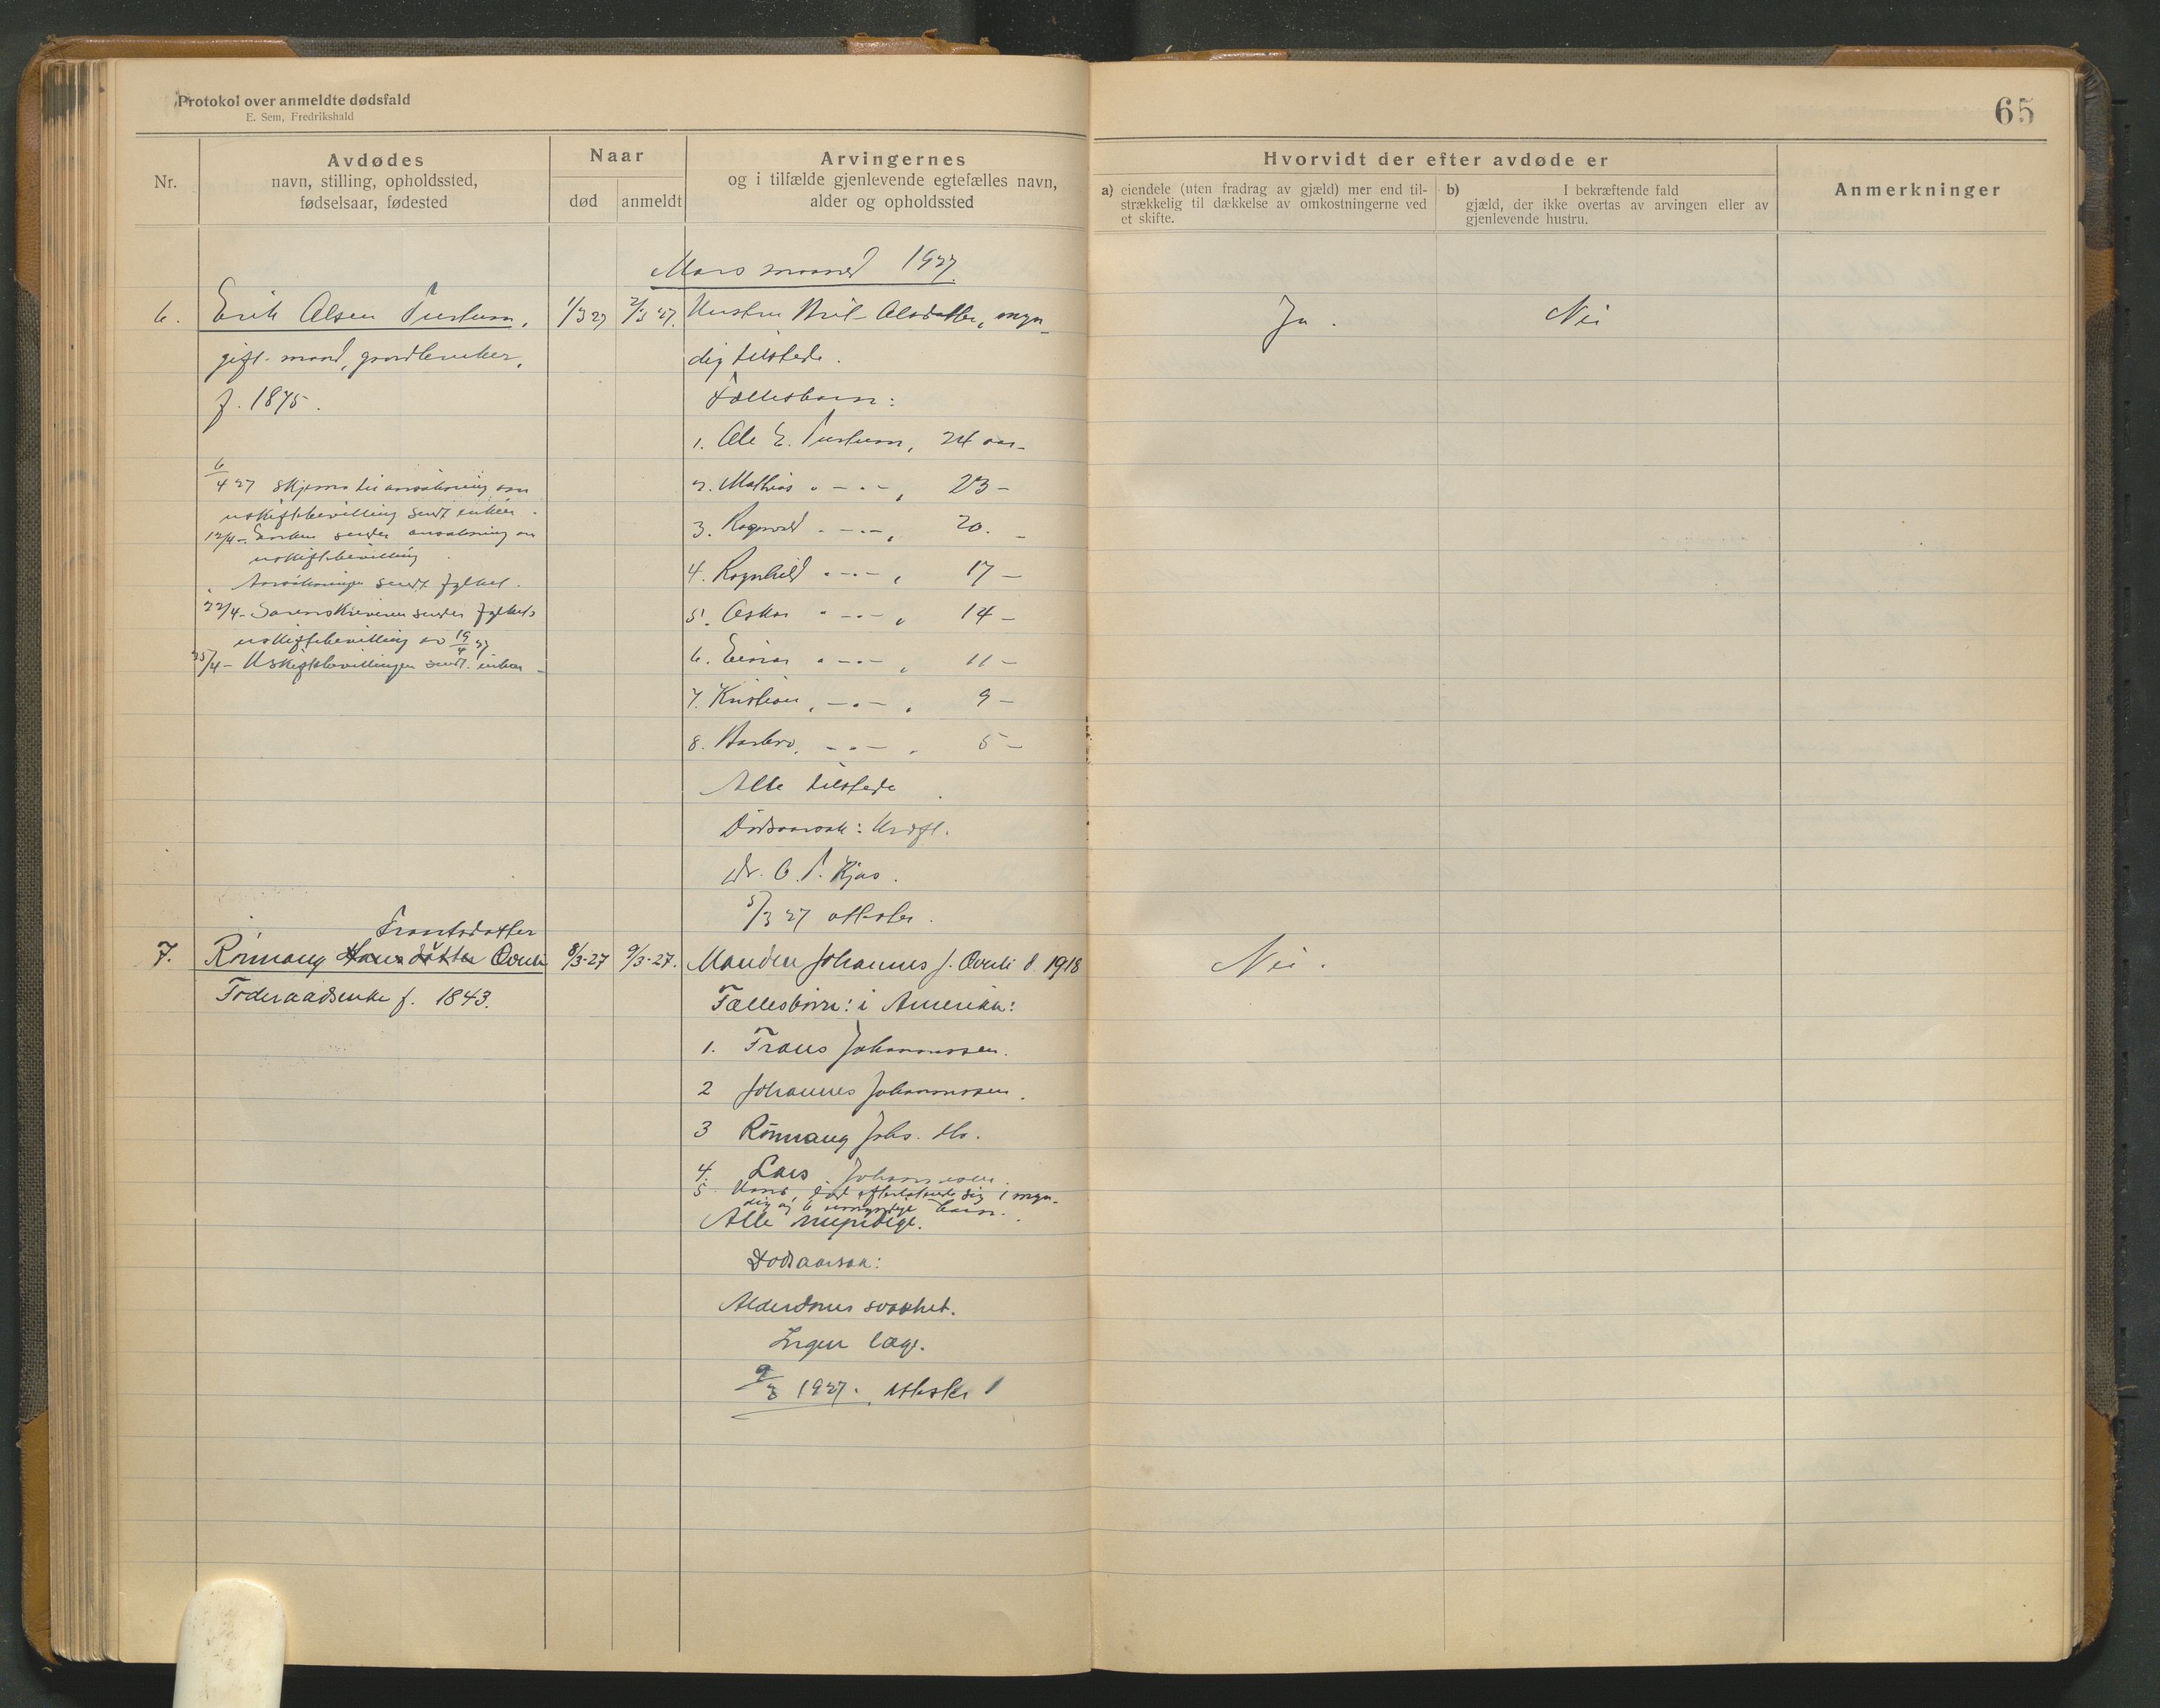 Protokol over anmeldte dødsfald
E. Sem, Fredrikshald
65
Nr.
Avdødes
navn, stilling, opholdssted,
fødselsaar, fødested
Naar
død
anmeldt
Arvingernes
og i tilfælde gjenlevende egtefælles navn,
alder og opholdssted
Hvorvidt der efter avdøde er
a) eiendele (uten fradrag av gjæld) mer end til-
strækkelig til dækkelse av omkostningerne ved
et skifte.
b) I bekræftende fald
gjæld, der ikke overtas av arvingen eller av
gjenlevende hustru.
Anmerkninger
Mars maaned 1927.
6.
Erik Olsen
gift mand, gaardbruker,
f. 1875.
6/4 27 Skjema til ansøkning om
uskiftebevilling sendt enken.
12/4 - Enken sender ansøkning om
uskiftebevilling
Ansøkningen sendt fylket.
22/4 - Sorenskriveren sender fylkets
uskiftebevilling av 19/4 27
25/4 - Uskiftebevillingen sendt enken -
1/3 27
2/3 27.
Hustru Brit Olsdatter, myn-
dig tilstede.
Fællesbarn:
1. Ole E. 24 aar -
2. Mathias " - " - , 23 -
3. Ragnvald " - " - , 20. -
4. Ragnhild " - " - , 17 -
5. Oskar " - " - , 14 -
6. Einar " - " - , 11 -
7. Kristian, - " - , 9 -
8. Barbro, - " - , 5 -
Alle tilstede.
Dødsaarsak: Kræft.
Dr. Kjos.
5/3 27 attester.
Ja.
Nei
7.
Frantsdatter
Rønnaug Hansdatter Øvrli
Føderaadsenke f. 1843.
8/3-27
9/3-27.
Manden Johannes J. Øvrli d. 1918
Fællesbørn: i Amerika:
1. Frans Johannessen.
2 Johannes Johannessen.
3 Rønnaug Johs. dtr.
4. Lars Johannessen.
5 Hans, død efterlatende sig 1 myn-
dig og 6 umyndige barn.
Alle myndige.
Dødsaarsak:
Alderdoms svakhet.
Ingen læge.
9/3 1927. attester
Nei.